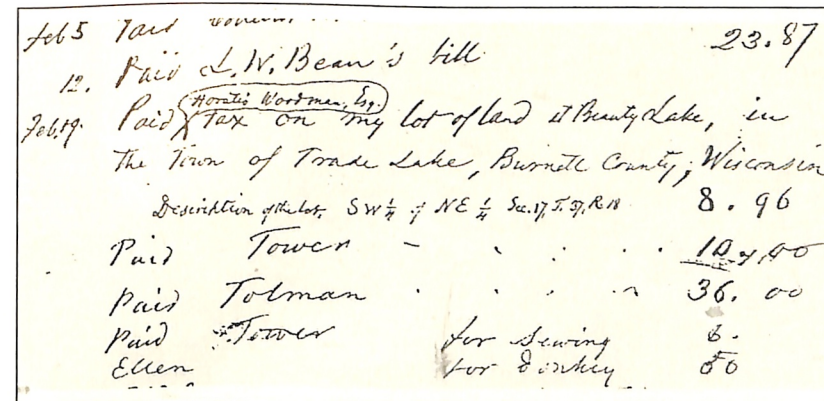 Feb 5 Paid
12. Paid L. W. Bean's bill 23.87
Horatio Woodman, Esq.
Feb. 19. Paid tax on my lot of land at Beauty Lake, in
the Town of Trade Lake, Burnett County, Wisconsin
Description of the lot, SW ¼ of NE ¼ Sec. 17, T. 37, R. 18 8.96
Paid Tower
Paid Tolman 36.00
Paid Tower for sewing 6.
Ellen for 50